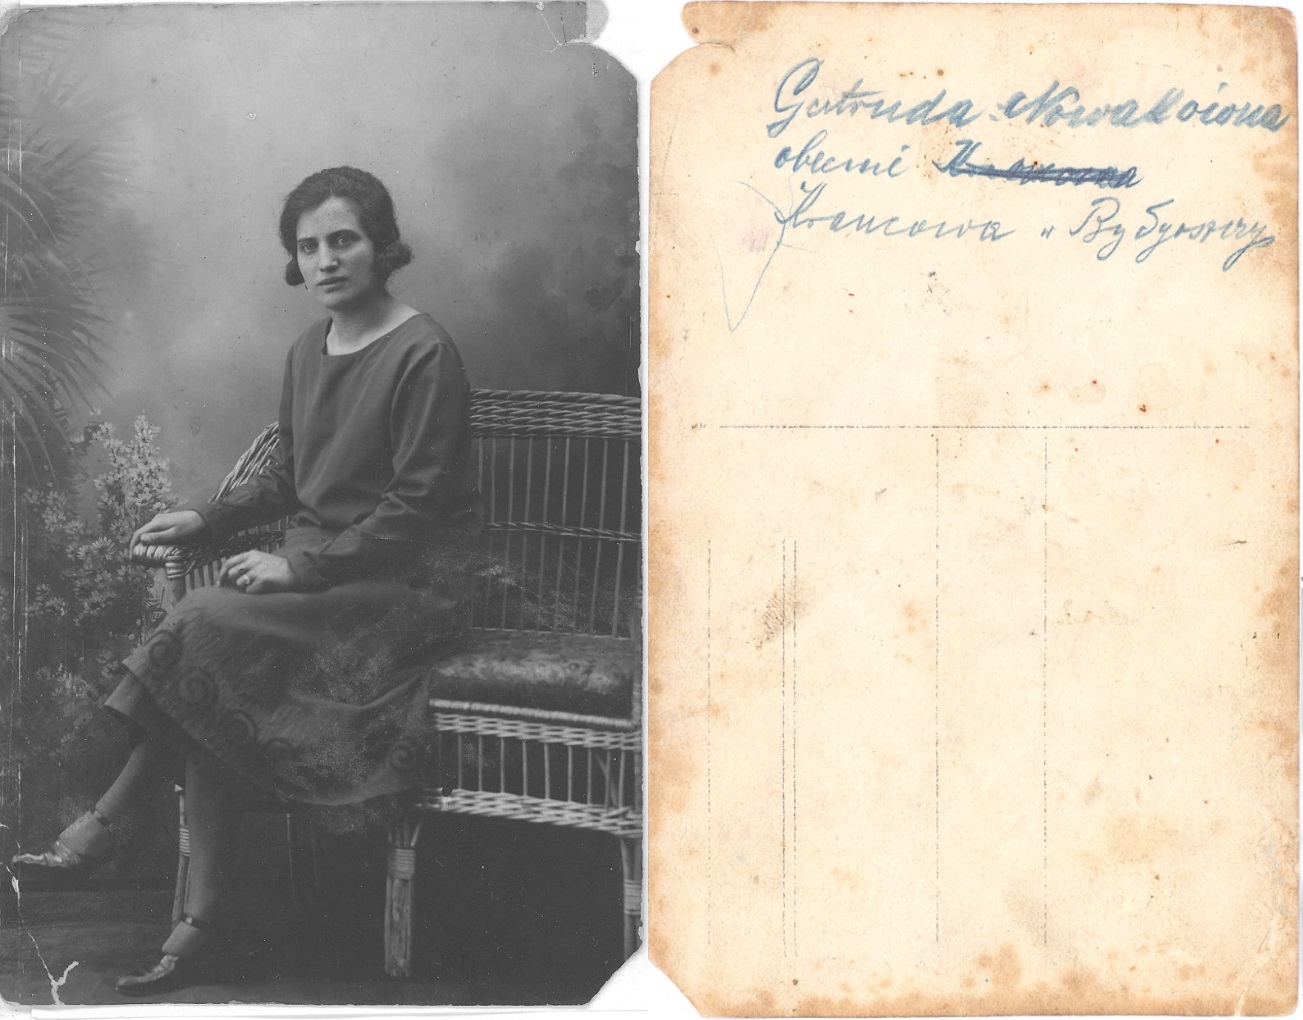 Gertruda Nowakowna
obecnie
Francowa w Bydgoszczy